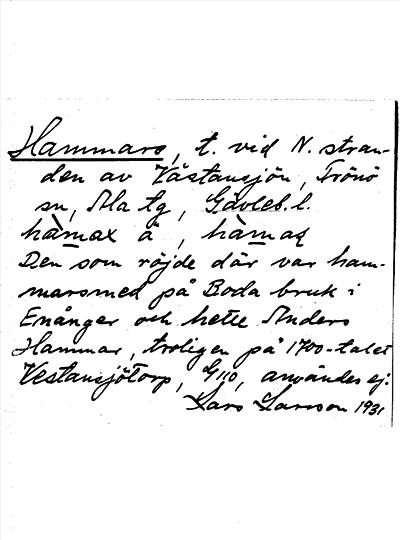 Hammars, t. vid N. stran-
den av Västansjön, Trönö
sn, Ala tg, Gävleb. l.
hàmax å, hàmas
Den som röjde där var ham-
marsmed på Boda bruk i
Enånger och hette Anders
Hammar, troligen på 1700-talet
Vestansjötorp, G110, användes ej.
Lars Larsson 1931